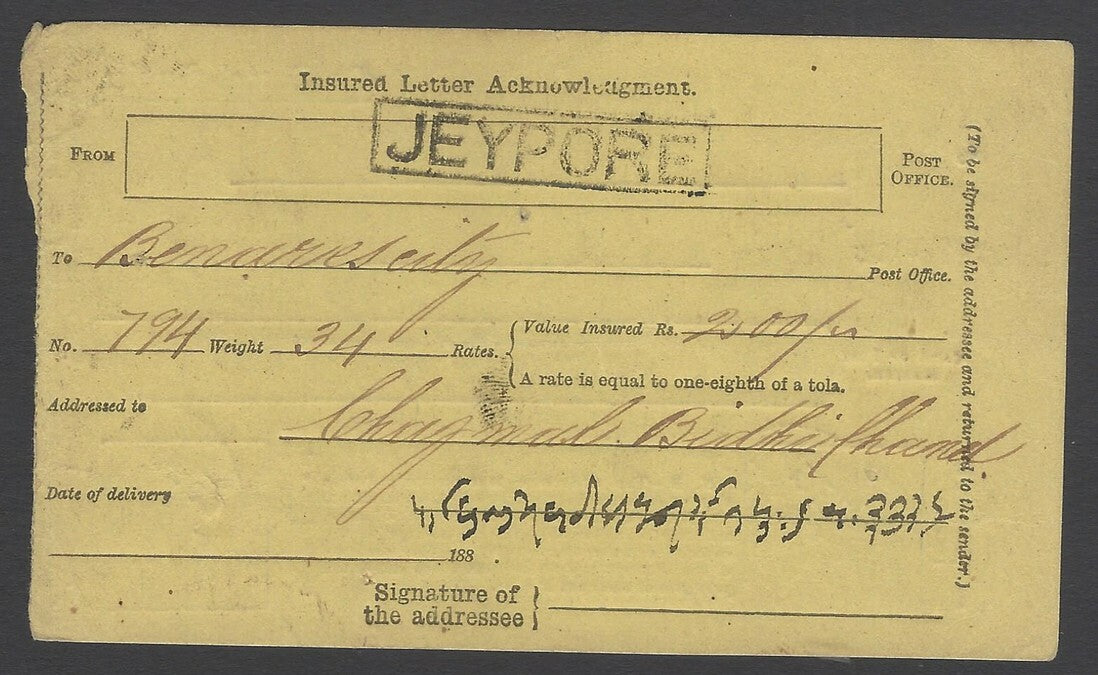 Insured Letter Acknowledgment.
JEYPORE
FROM POST OFFICE.
To Benares city Post Office.
No. 794 Weight 34 Rates. { Value Insured Rs. 200/-
A rate is equal to one-eighth of a tola.
Addressed to
Chagmal Bidhi Chand
Date of delivery
188 .
Signature of
the addressee }
(To be signed by the addressee and returned to the sender.)